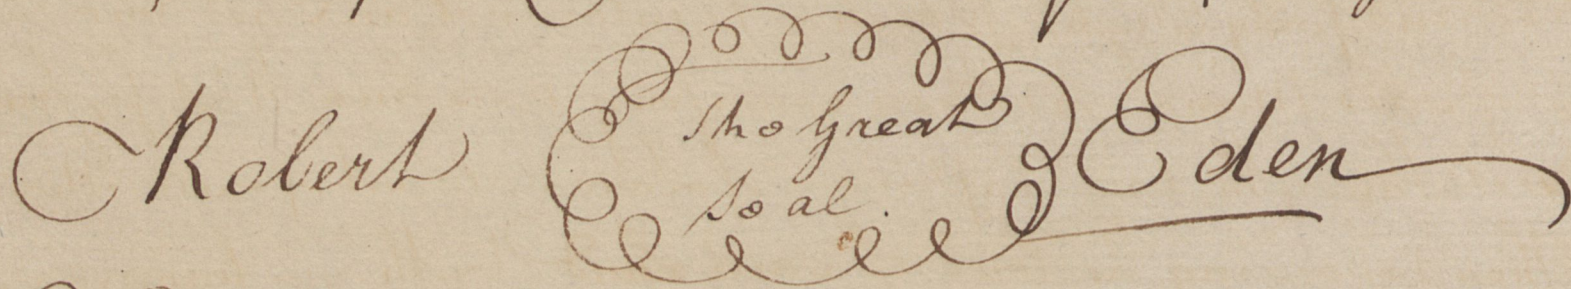 Robert
The Great
Seal.
Eden